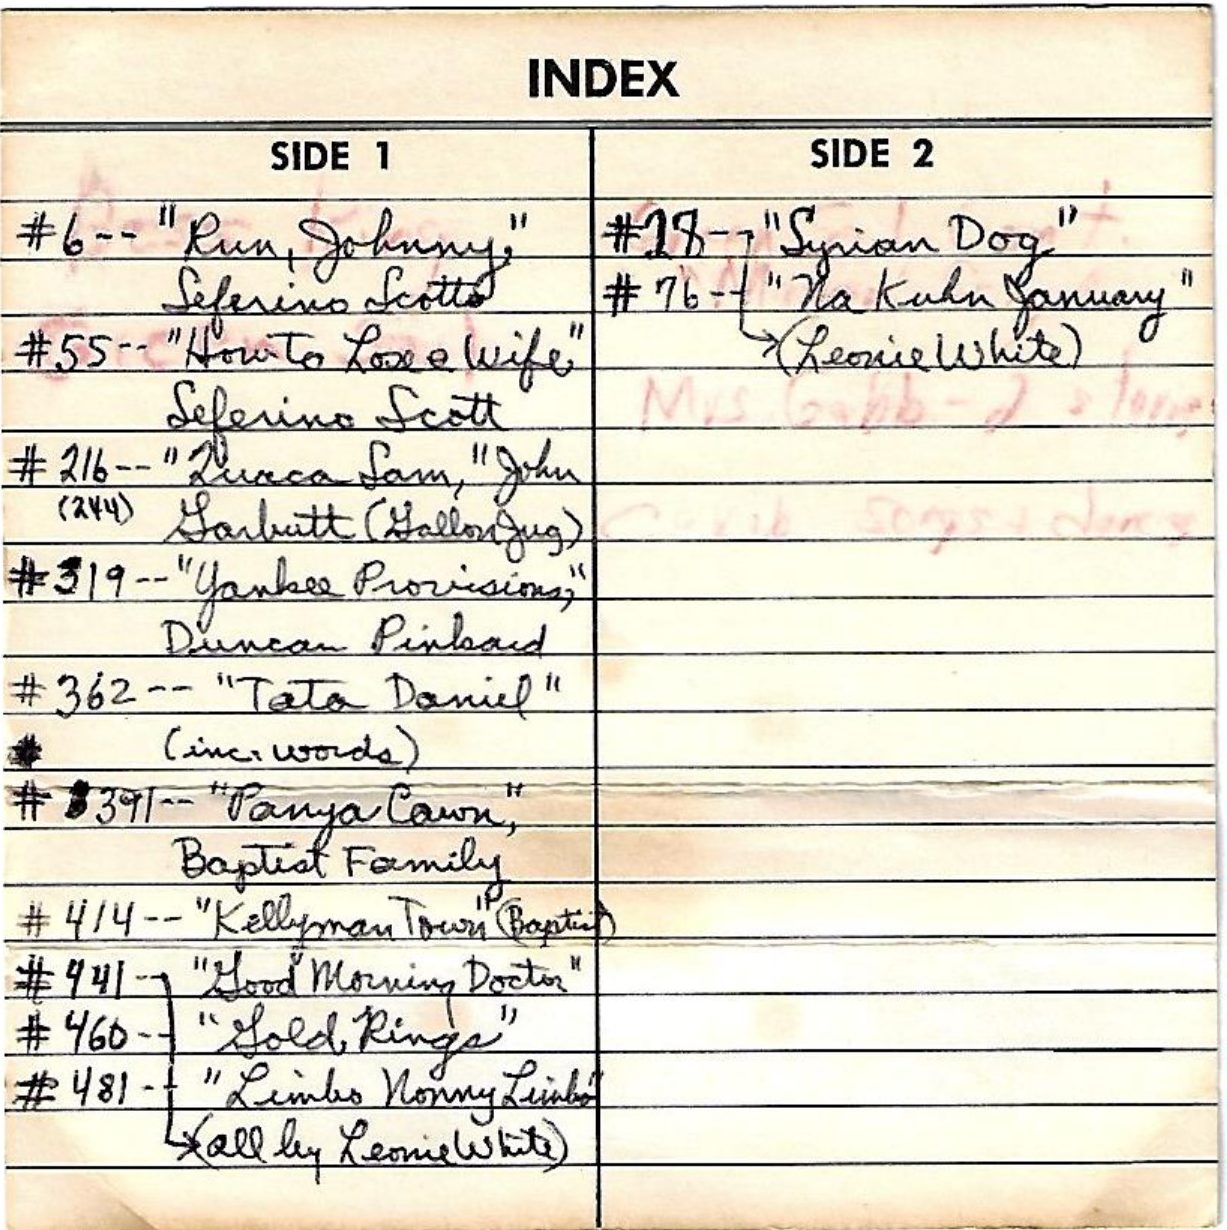 INDEX
SIDE 1
#6-- "Run, Johnny,"
Seferino Scotto
#55-- "How To Lose a Wife"
Seferino Scott
#216-- "Quaca Sam," John
(244) Garbutt (Gallon Jug)
#319-- "Yankee Provisions,"
Duncan Pinkard
#362-- "Tata Daniel"
(inc. words)
#391-- "Panya Cawn,"
Baptist Family
#414-- "Kellyman Town" (Baptist)
#441- "Good Morning Doctor"
#460-- "Gold Rings"
#481-- "Limbo Nonny Limbo"
(all by Leonie White)
SIDE 2
#28-- "Syrian Dog"
#76-- "Na Kuhn January"
(Leonie White)